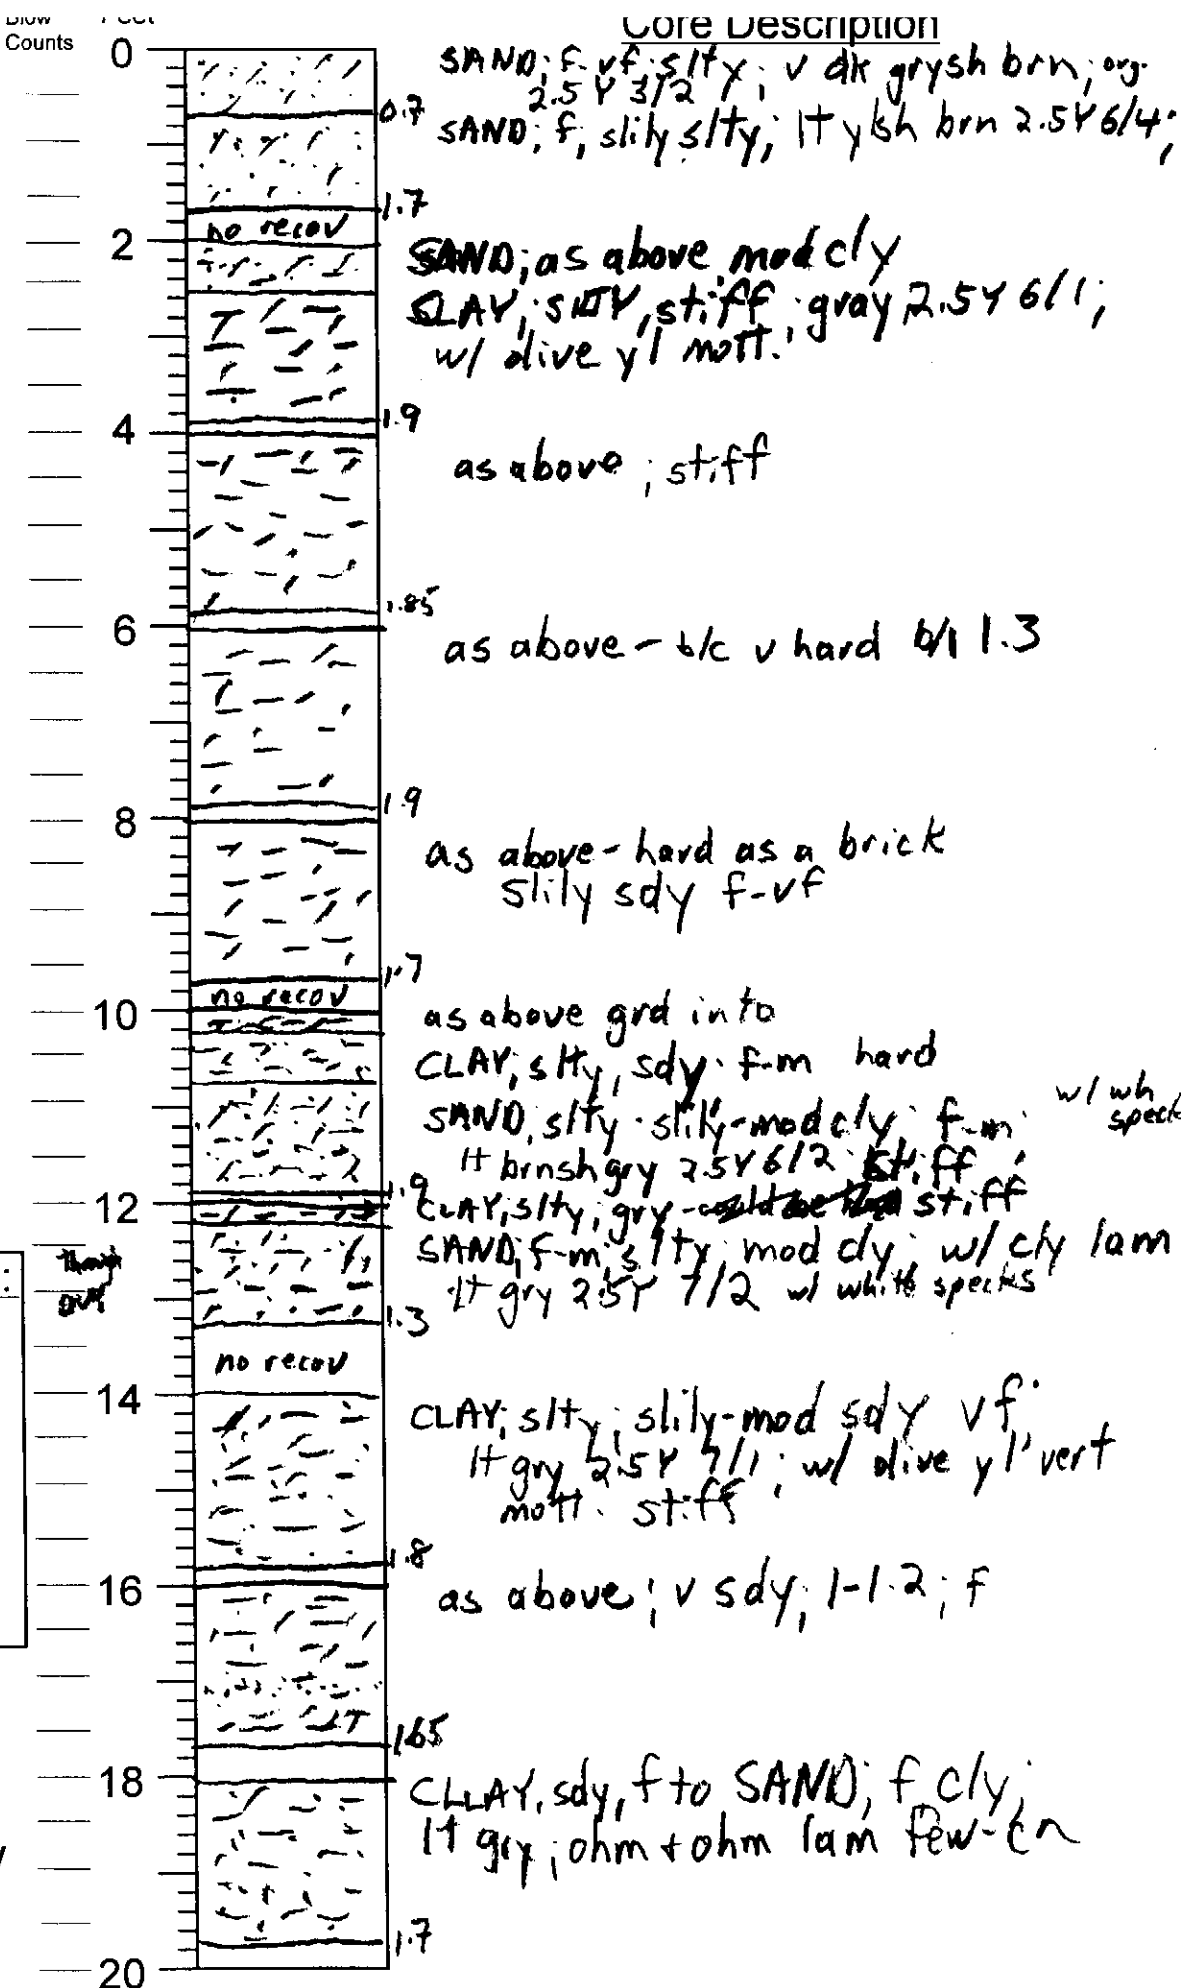 Blow
Counts
Feet
Core Description
0
SAND; f-vf; slty; v dk grysh brn; org.
2.5Y 3/2
0.7
SAND; f, slily slty; lt ylsh brn 2.5Y 6/4;
1.7
no recov
2
SAND; as above mod cly
CLAY; SLTY, stiff; gray 2.5Y 6/1;
w/ olive yl mott.
1.9
4
as above; stiff
1.85
6
as above - b/c v hard 1.3
1.9
8
as above - hard as a brick
slily sdy f-vf
1.7
no recov
10
as above grd into
CLAY; slty, sdy f-m hard
SAND, slty slily-mod cly f-m; w/ wh
speck
lt brnsh gry 2.5Y 6/2 stiff
1.9
12
CLAY, slty; gry - stiff
SAND; f-m; slty; mod cly; w/ cly lam
lt gry 2.5Y 7/2 w/ white specks
1.3
no recov
14
CLAY; slty; slily-mod sdy vf;
lt gry 2.5Y 7/1; w/ olive yl vert
mott. stiff
1.8
16
as above; v sdy; 1-1.2; f
1.65
18
CLLAY, sdy, f to SAND; f cly;
lt gry; ohm + ohm lam few-
1.7
20